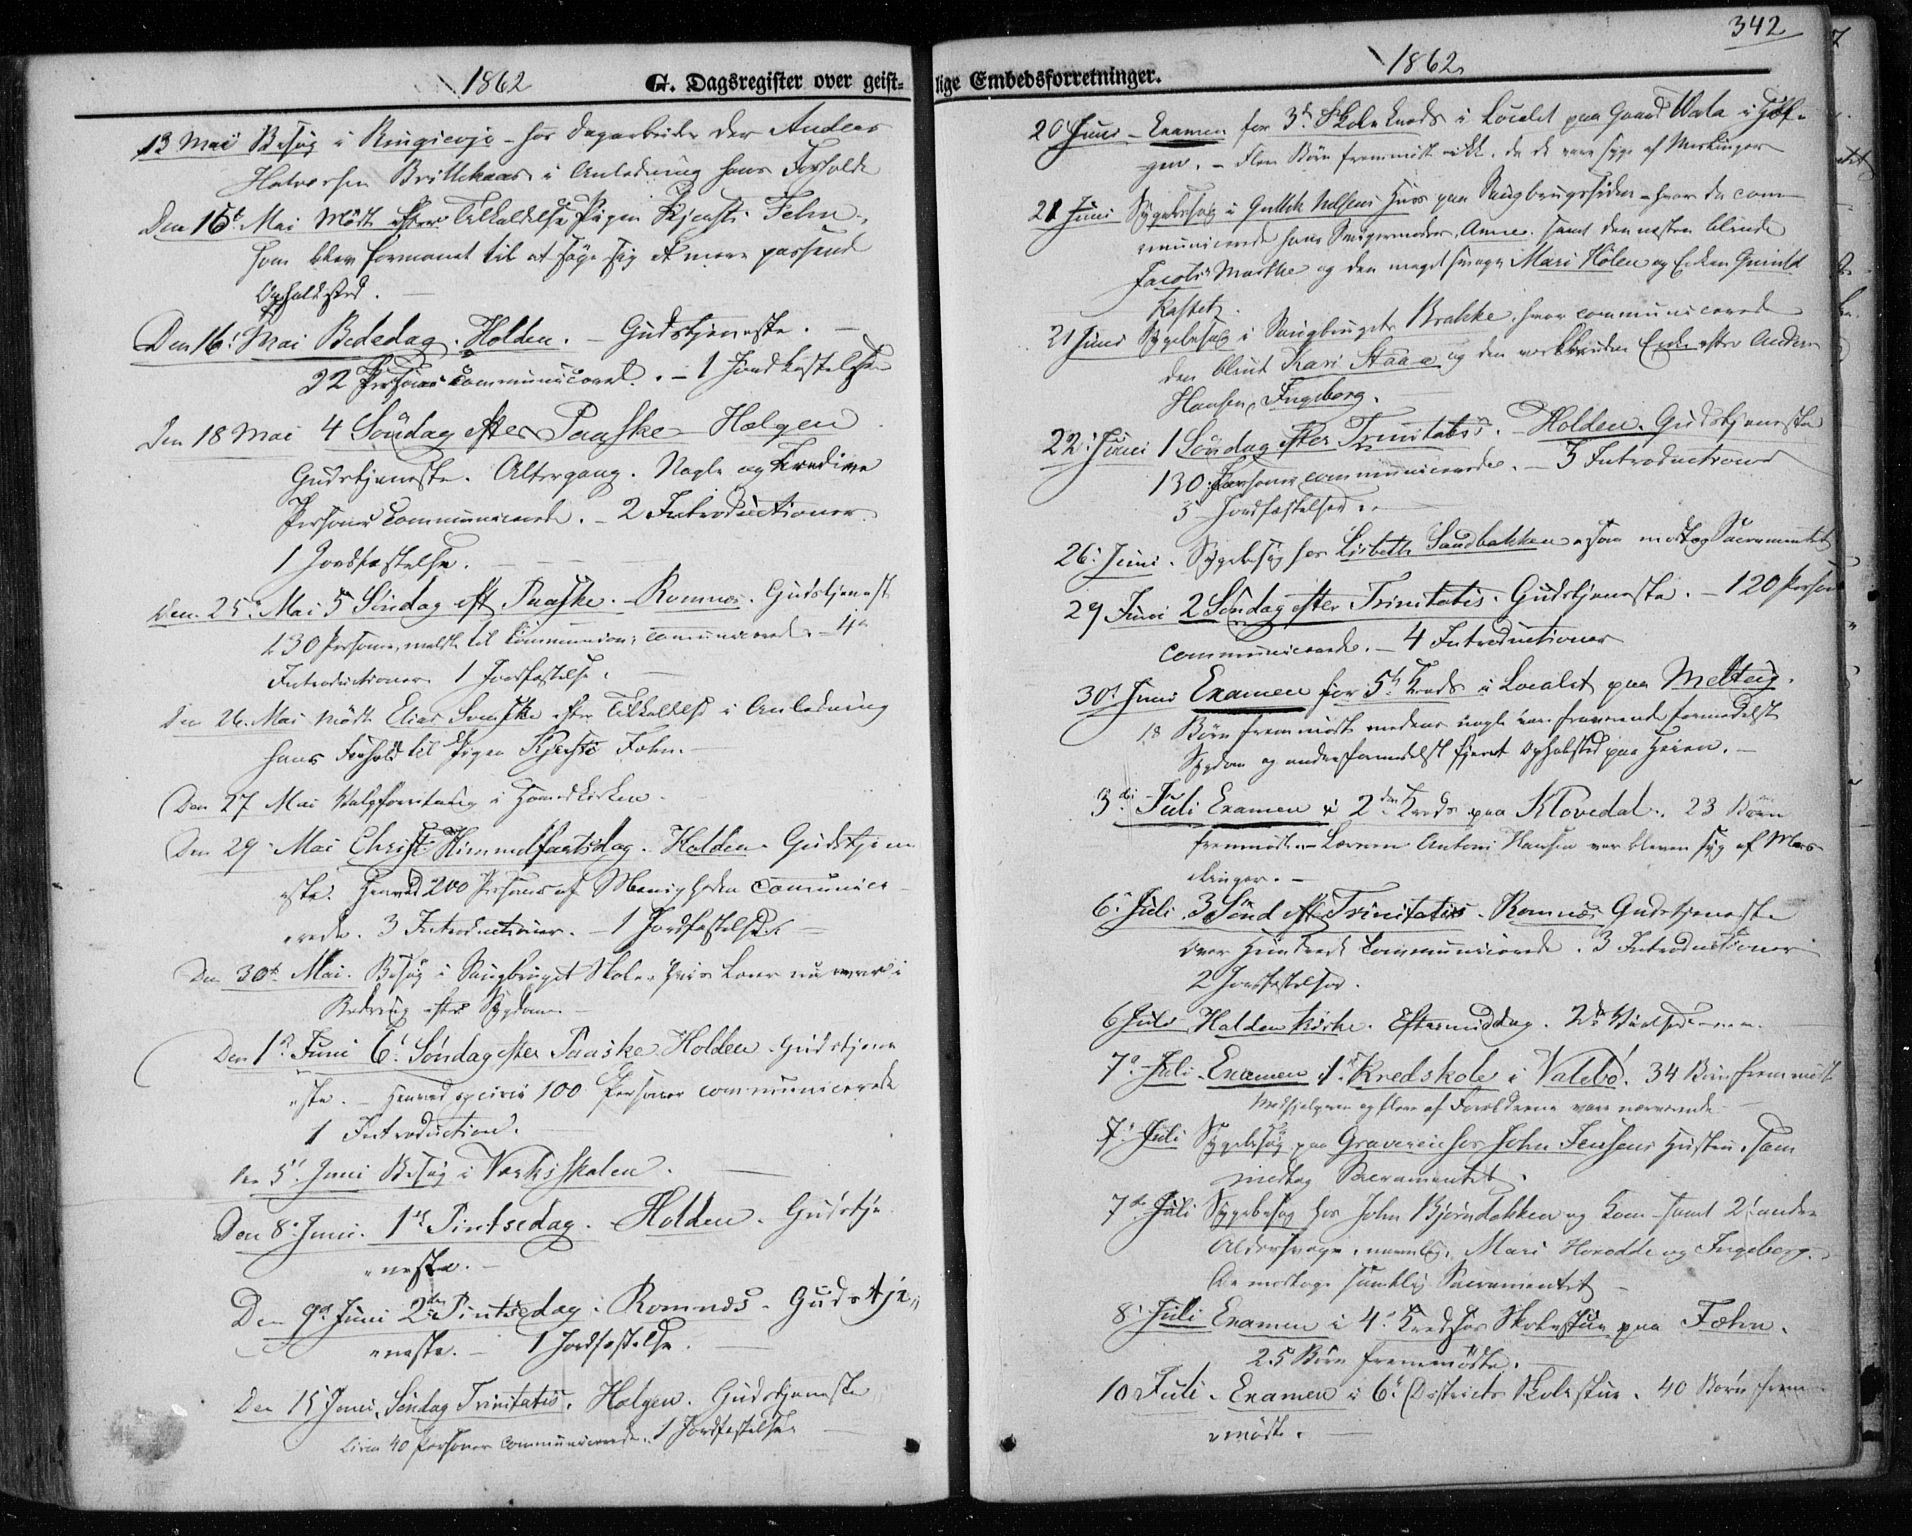 1862
G. Dagsregister over geist-
13 Mai Besøg i Ringsevje - hos Dagarbeider Anders
Halvorsen Brittekaas i Anledning hans Forhold
Den 15d Mai Mødt efter Tilkaldelse Pigen Kjersti Fehn,
som blev formanet til at søge sig et mere passend
Opholdssted.
Den 16' Mai Bededag. Holden. - Gudstjeneste. -
22 Personer communicerede. - 1 Jordfæstelse
Den 18 Mai 4 Søndag efter Paaske - Helgen
Gudstjeneste. Altergang. Nogle og Tredive
Personer communicerede. - 2 Introductioner.
1 Jordfæstelse.
Den 25' Mai 5 Søndag eft Paaske. - Romnes. Gudstjenest
130 Personer, meldte til Communion, communicerede - 4
Introductioner 1 Jordfæstelse.
Den 26. Mai mødte Elias efter Tilkaldelse i Anledning
hans Forhold til Pigen Kjersti Fehn. -
Den 27 Mai Valgforretning i Hovedkirken.
Den 29' Mai Christi Himmelfartsdag. Holden. Gudstjen
este. Henved 200 Personer af Menigheden communice-
rede. 3 Introductioner. - 1 Jordfæstelse. -
Den 30t Mai. Besøg i Saugbruget Skole, hvis Lærer nu er i
Bedring efter Sygdom. -
Den 1ste Juni 6' Søndag efter Paaske Holden. Gudstjene
ste. - Henved 100 Personer communicerede
1 Introduction.
den 5' Juni Besøg i Værksskolen. -
Den 8' Juni. 1ste Pintsedag. Holden. Gudstje
neste. -
Den 9d Juni 2den Pintsedag. Romnes. Gudstje,,
neste. - 1 Jordfæstelse.
Den 15 Juni, Søndag Trinitatis. Helgen. Gudstjeneste
circa 40 Personer communicerede. 1 Jordfæstelse
342
1862
lige Embedsforretninger.
20 Juni - Examen for 3d Skolekreds i Localet paa Gaard Vala i Hel-
gen. - Flere Børn fremmødte ikke, da de vare syge af Meslinger
21 Juni Sygebesøg i Gullik Nilsens Huus paa Saugbrugssiden - hvor da com-
municerede hans Svigermoder, Anne, samt den næsten blinde
Jacob og den meget svage Mari Holen og Enken Gunild
21 Juni Sygebesøg i Saugbrugets Brakke, hvor communicerede
den blinde Kari Staaa og den værkbrudne Enke efter Anders
Hansen, Ingeborg.
22' Juni 1 Søndag efter Trinitatis. - Holden. Gudstjeneste
130 Personer communicerede. - 5 Introductioner
5 Jordfæstelser. -
26' Juni. Sygebesøg hos Lisbeth Sandbakken, som modtog Sacramentet
29 Juni 2 Søndag efter Trinitatis. Gudstjeneste. - 120 Person
communicerede. - 4 Introductioner
30t Juni Examen for 5te Kreds i Localet paa Melteig.
18 Børn fremmødte medens nogle vare fraværende formedelst
Sygdom og andre formedelst fjernt Opholdsted paa Heien. -
3die Juli Examen i 2den Kreds paa Klovedal. 23 Børn
fremmødte. - Læreren Antoni Hansen var bleven syg af Mes-
linger. -
6' Juli 3 Sønd eft Trinitatis. Romnes Gudstjeneste
over Hundrede communicerede. 3 Introductioner
2 Jordfæstelser.
6 Juli Holden Kirke. Eftermiddag. 2
7' Juli Examen 1ste Kredskole i Valebø. 34 Børn fremmødte
Medhjelperen og flere af Forældrene vare nærværende
7' Juli Sygebesøg paa Graverein hos John Jensens Hustru, som
modtog Sacramentet.
7de Juli Sygebesøg hos John Bjørndokken og Kone samt 2' andre
Aldersvage, navnlig, Mari Hovedde og Ingeborg.
De modtoge samtlige Sacramentet -
8' Juli Examen i 4' Kredses Skolestue paa Fæhn.
25 Børn fremmødte.
10 Juli. Examen i 6' Districts Skolestue. 40 Børn frem-
mødte. -